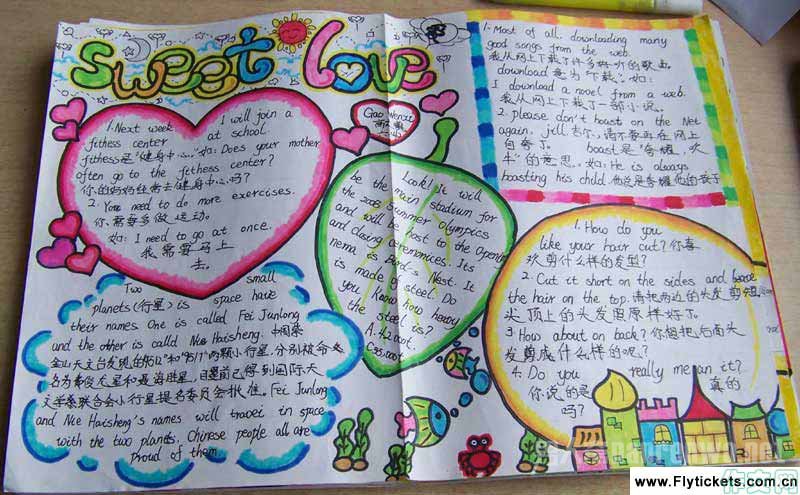 sweet love
1. Next week I will join a
fitness center at school.
fithess是“健身中心”。如: Does your mother
often go to the fithess center?
你的妈妈经常去健身中心吗?
2. You need to do more exercises.
你需要多做运动.
如: I need to go at once.
我需要马上
去。
Gao Wenxi
Look! It will
be the main stadium for
the 2008 Summer Olympics
and will be host to the Opening
and closing ceremonies. Its
nema is Bird's Nest. It
is made of steel. Do
you know how heavy
the steel is?
A. 42000t.
C35,000t
1. Most of all. downloading many
good songs from the web.
我从网上下载了许多好听的歌曲
download 意为“下载”. 如:
I download a novel from a web.
我从网上下载了一部小说。
2. please don't boast on the Net
again, jill 吉尔, 请不要再在网上
自夸了。 boast是“夸耀, 吹
牛”的意思。如: He is always
boasting his child. 他总是夸耀他的孩子
1. How do you
like your hair cut? 你喜
欢剪什么样的发型?
2. Cut it short on the sides and leave
the hair on the top. 请把两边的头发剪短
头顶上的头发照原样好了。
3. How about on back? 你想把后面头
发剪成什么样的呢?
4. Do you really mean it?
你说的是 真的
吗?
Two small
planets (行星) is space have
their names One is called Fei Junlong
and the other is called Nie Haisheng. 中国紫
金山天文台发现的 和 两颗小行星, 分别被命
名为费俊龙星和聂海胜星, 目前已得到国际天
文学联合会小行星提名委员会批准。Fei Junlong
and Nie Haisheng's names will travel in space
with the two planets. Chinese people all are
proud of them
www.Flytickets.com.cn
作文网